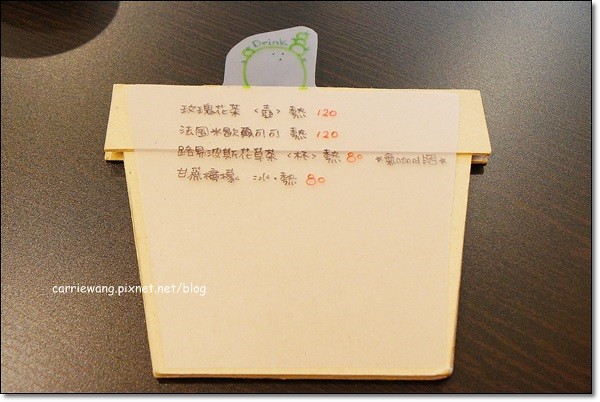 Drink
玫瑰花茶 (壺) 熱 120
法國米歇爾可可 熱 120
路易波斯花草茶 (杯) 熱 80
甘蔗檸檬 冰.熱 80
carriewang.pixnet.net/blog